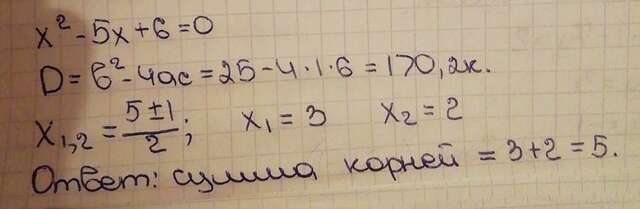 x² - 5x + 6 = 0
D = b² - 4ac = 25 - 4·1·6 = 1>0, 2к.
x₁,₂ = (5 ± 1)/2; x₁ = 3 x₂ = 2
Ответ: сумма корней = 3 + 2 = 5.